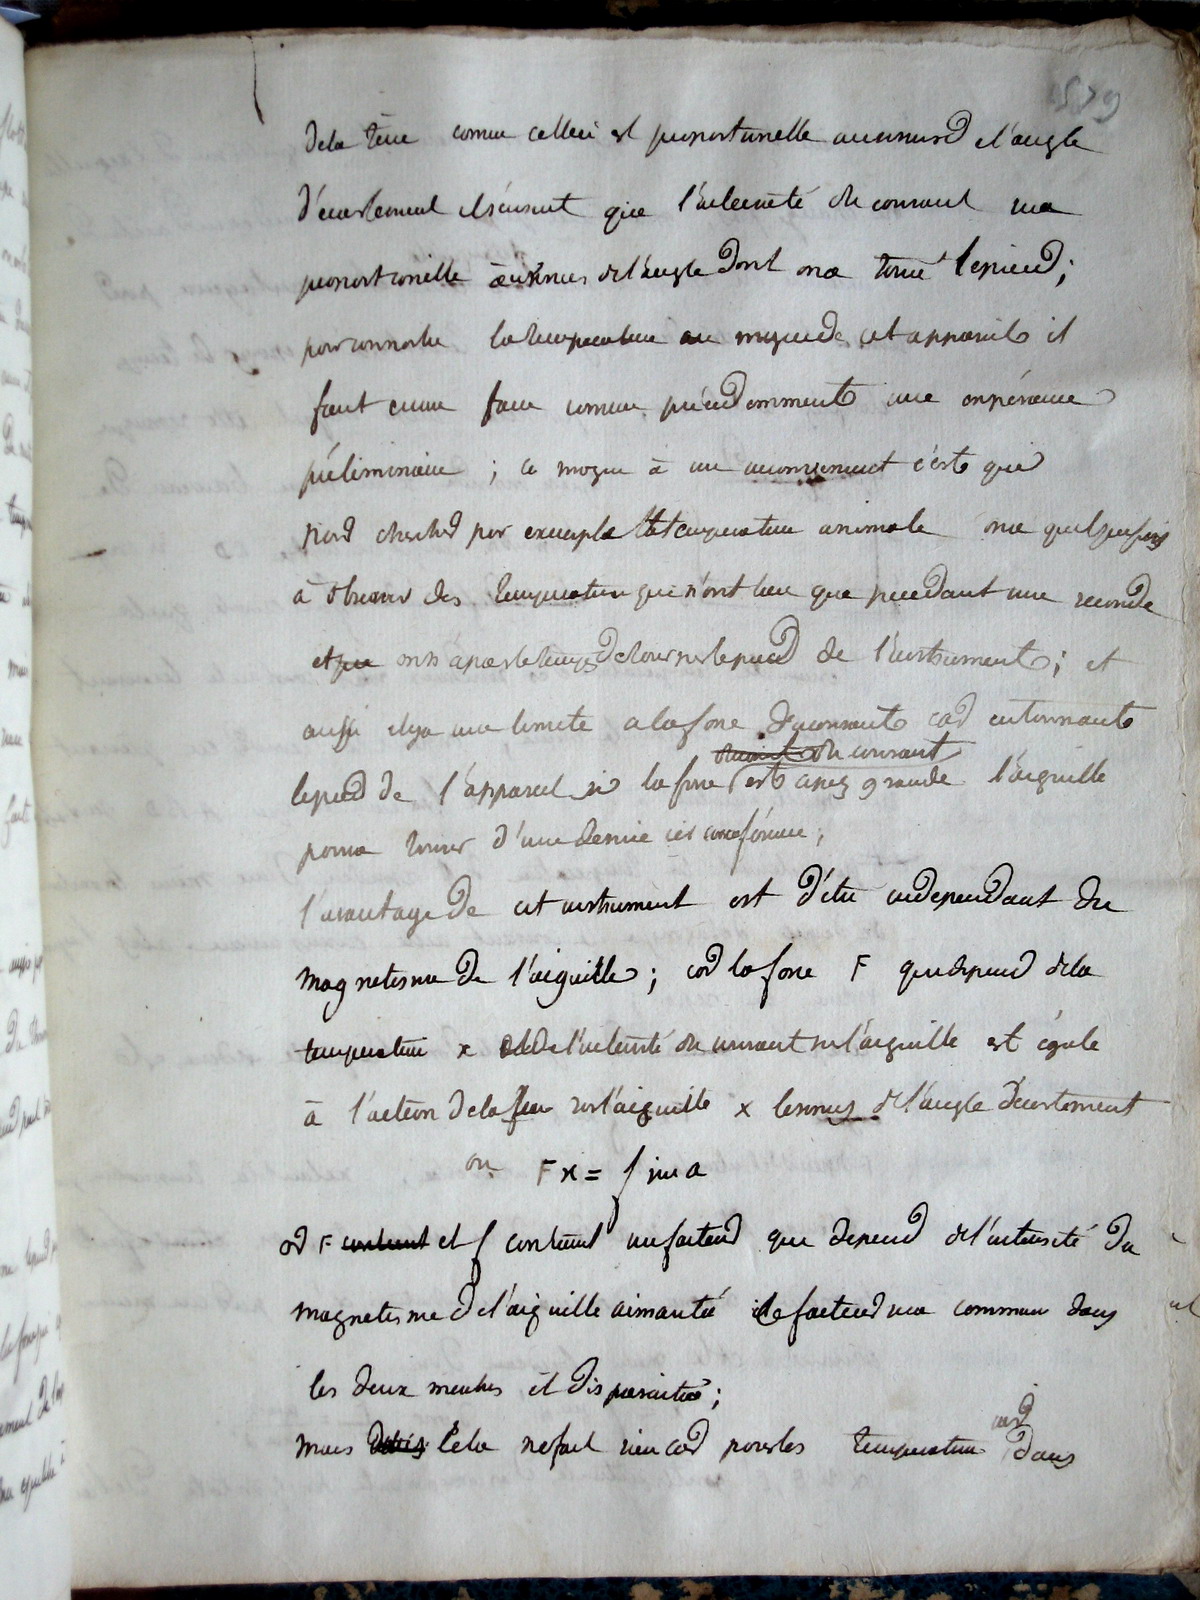 dela terre comme celleci est proportionelle au sinus d l'angle
d'écartement il s'ensuit que l'intensité du courant sera
proportionelle au sinus de l'angle dont on a tourné le pied;
pour connoitre la temperature au moyen de cet appareil il
faut encore faire comme précédemment une expérience
préliminaire; ce moyen a un inconvenient c'est que
pour chercher par exemple la temperature animale on a quelquefois
à observer des temperatures qui n'ont lieu que pendant une seconde
et on n'a pas le temps de tourner le pied de l'instrument; et
aussi il y a une limite a la force du courant car en tournant
du courant
le pied de l'appareil si la force est assez grande l'aiguille
pourra tourner d'une demie circonférence;
l'avantage de cet instrument est d'être independant du
magnetisme de l'aiguille; car la force F qui depend de la
temperature x de l'intensité du courant sur l'aiguille est égale
à l'action de la terre sur l'aiguille x le sinus de l'angle d'écartement
ou Fx = f sin a
or F contient et f contient un facteur qui depend de l'intensité du
magnetisme de l'aiguille aimantée ce facteur sera commun dans
les deux membres et disparaitra;
mais cela ne fait rien car pour les temperatures dans